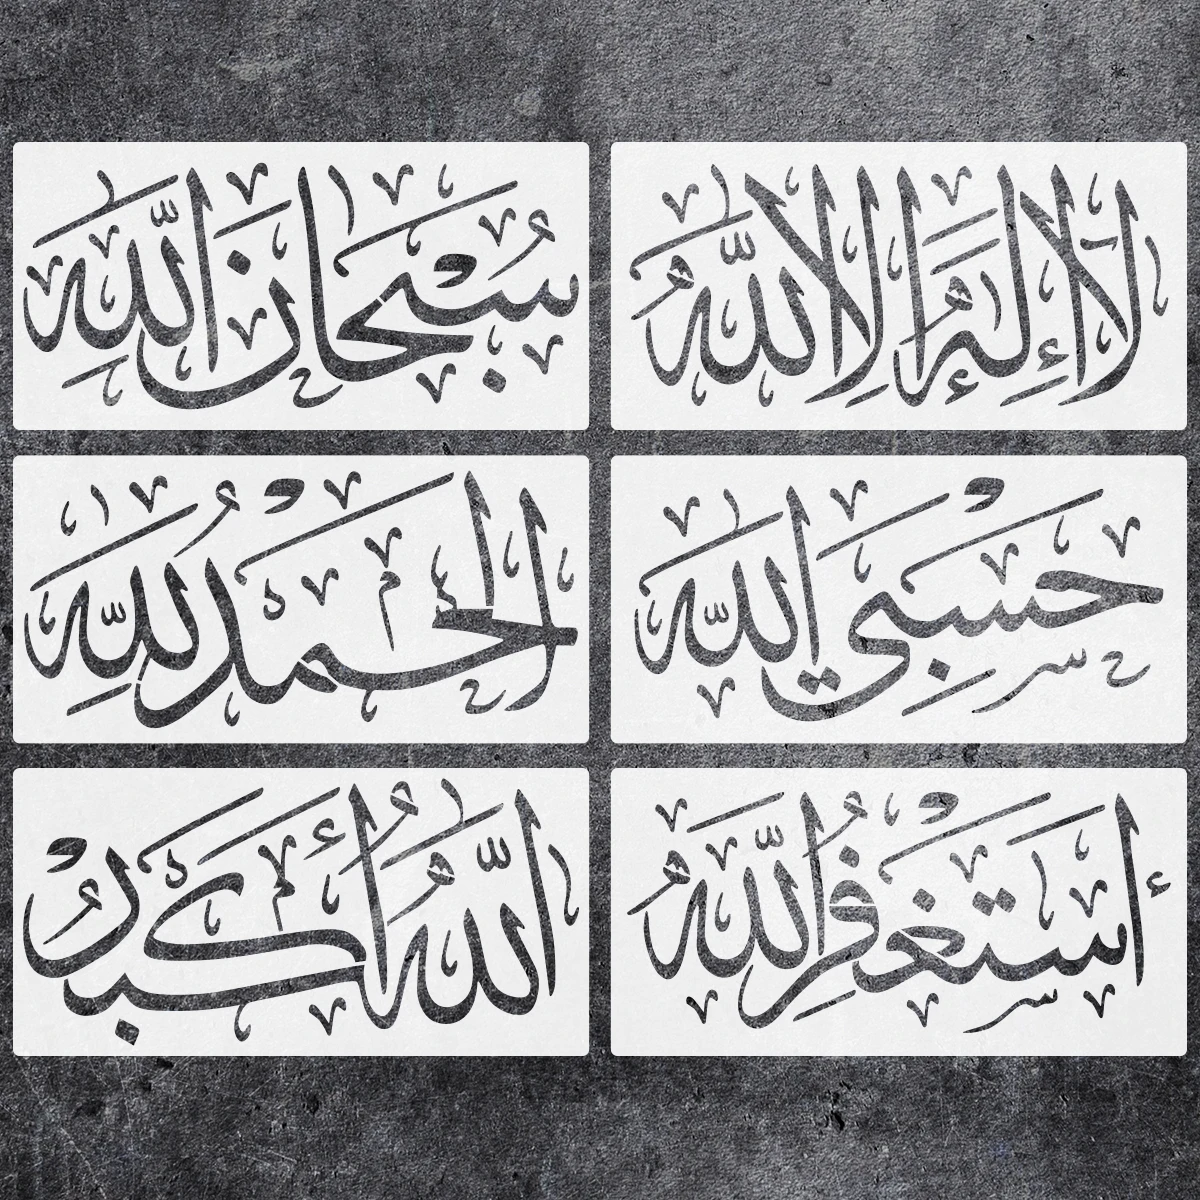 سُبْحَانَ اللّٰهِ
لَا إِلٰهَ إِلَّا اللّٰهُ
الْحَمْدُ لِلّٰهِ
حَسْبِيَ اللّٰه
اللّٰهُ أَكْبَرُ
أَسْتَغْفِرُ اللّٰهَ